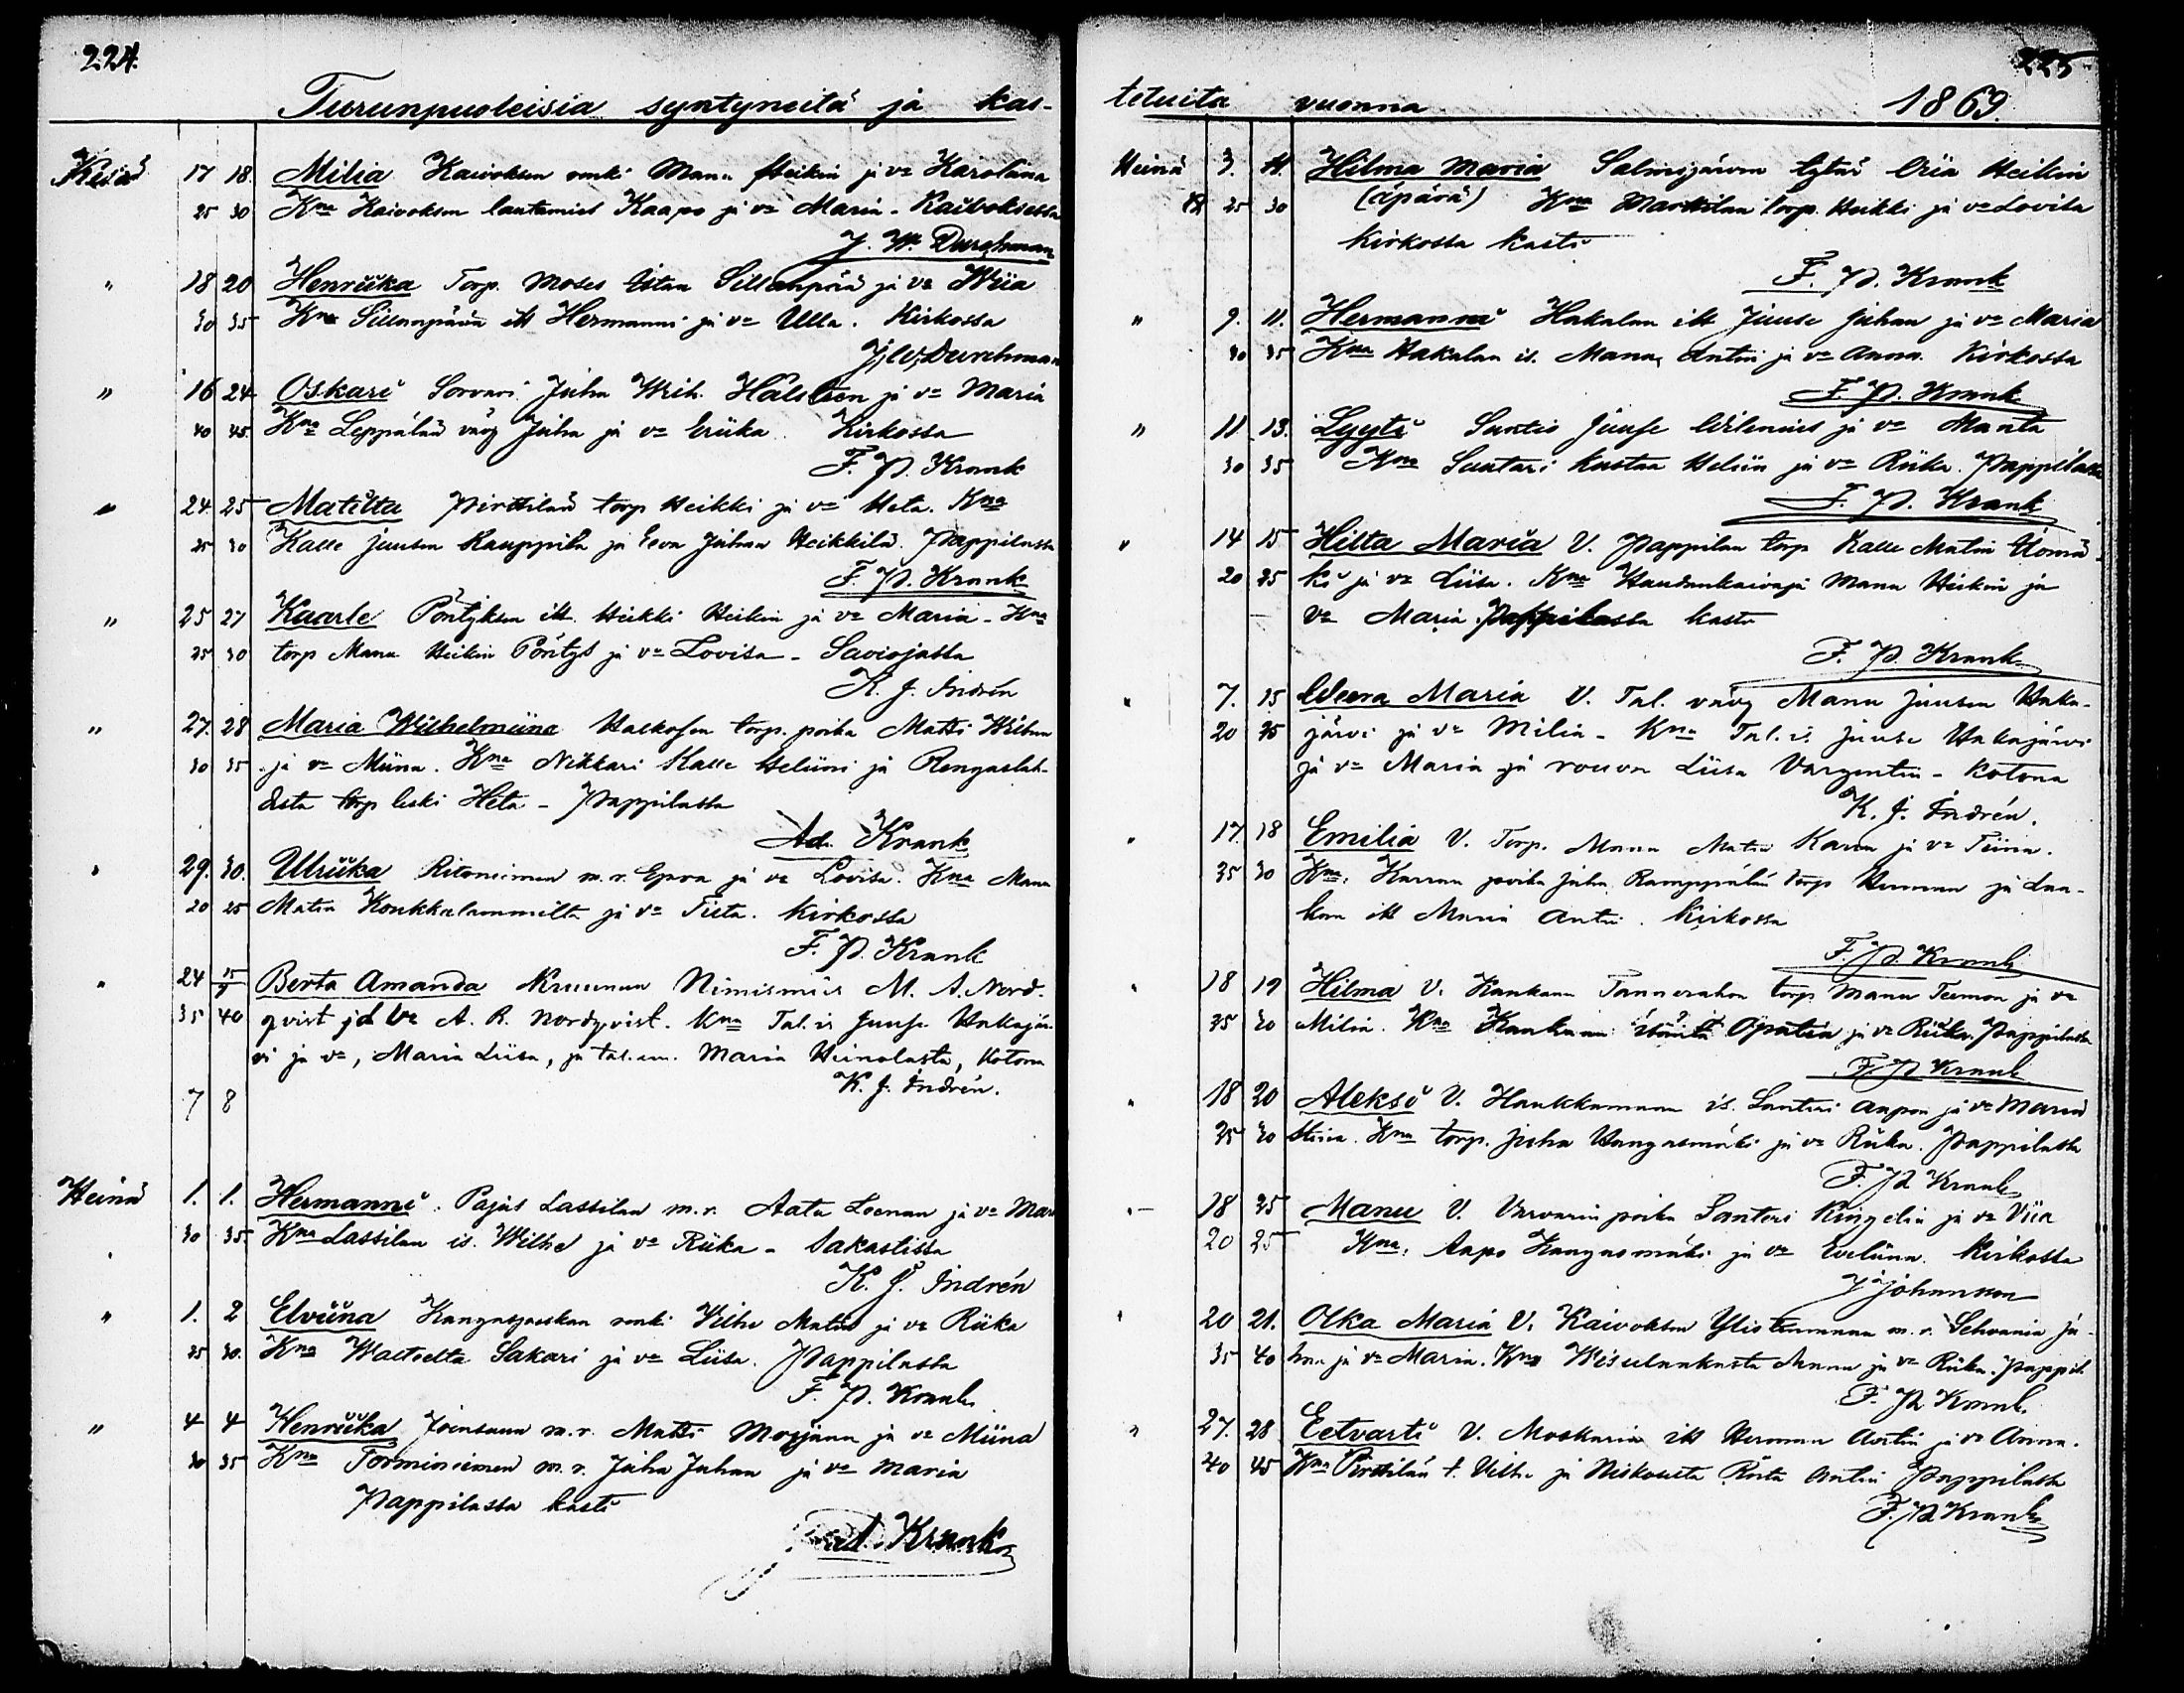 224.
Turunpuoleisia syntyneitä ja kas-
Kesä 17 18. Milia Kaivoksen renki Manu Heikin ja va Karolina
25 30 Kna Kaivoksen lautamies Kaapo ja va Maria - Kaivoksessa
J. W. Durchman
" 18 20 Henriika Torp. Moses Sillanpää ja va Wiia
30 35 Kna Sillanpään itt Hermanni ja va Ulla. Kirkossa
J. W. Durchman
" 16 24 Oskari Sorvari Juha Wilh. Hålsteen ja va Maria
40 45. Kna Leppälän väv Juha ja va Eriika. Kirkossa
F. P. Krank
" 24. 25 Matilta Pirttilän torp Heikki ja va Heta. Kna
25 30 Kalle Juusen Kauppila ja Eeva Juhan Heikkilä. Pappilassa
F. P. Krank
" 25 27 Kaarle Pöntyksen itt. Heikki Heikin ja va Maria - Kna
25 30 torp Manu Heikin Pöntys ja va Lovisa - Saviojassa
K. J. Indrén
" 27. 28 Maria Wilhelmiina torp. poika Matti Wilhun
30 35 ja va Miina. Kna Nikkari Kalle Heliini ja Rengaslah-
desta torp leski Heta - Pappilassa
Ad. Krank
29. 30. Ulriika Ritoniemen m.r. ja va Lovisa. Kna Manu
20 25 Matin Koukkulammilta ja va Tiita. Kirkossa
F. P. Krank
" 24 15/7 Berta Amanda Kruunun Nimismies M. A. Nord-
35 40 qvist ja va A. R. Nordqvist. Kna Tal. is Juuse Hakajär-
vi ja va, Maria Liisa, ja tal. em. Maria Heinolasta, Kotona
K. J. Indrén.
7 8
Heinä 1. 1. Hermanni. Pajus Lassilan m.r. Aatu Leenan ja va Mar
30 35. Kna Lassilan is. Wilhe ja va Riika - Sakastissa
K. J. Indrén
" 1. 2 Elviina Kangas renki Wilhe Matin ja va Riika
25 30. Kna Sakari ja va Liisa. Pappilassa
F. P. Krank
" 4 4 Henriika Joensuun m.r. Matti ja va Miina
30 35 Kna Torminiemen m.r. Juha Juhan ja va Maria
Pappilassa kasti
Krank
225
tetuita vuonna 1869.
Heinä 3. 11. Hilma Maria Salmijärven tytär Heikin
25 30 (äpärä) Kna Marttilan torp. Heikki ja va Lovisa
Kirkossa kasti
F. P. Krank
" 9. 11. Hermanni Hakalan itt Juuse Juhan ja va Maria
30 35 Kna Hakalan is. Manu Antin ja va Anna. Kirkossa
F. P. Krank
" 11 13. Lyyti Suntio Juuse Wilenius ja va Manta
30 35 Kna Suutari Kustaa Heliin ja va Riika. Pappilassa
F. P. Krank
" 14 15 Hilta Maria V. Pappilan torp Kalle Matin
20 25 ki ja va Liisa. Kna Haudankaivaja Manu Heikin ja
va Maria. Pappilassa kasti
F. P. Krank
" 7. 15 Weera Maria V. Tal. väv Manu Juusen Haka-
20 25 järvi ja va Milia - Kna Tal. is. Juuse Hakajärvi
ja va Maria ja rouva Liisa - Kotona
K. J. Indrén.
" 17. 18 Emilia V. Torp. Manu Matin ja va Tiina.
25 30 Kna. poika Juha, torp Herman ja
itt Maria Antin. Kirkossa
F. P. Krank
" 18 19 Hilma V. torp. Manu Teemon ja va
25 30 Milia. Kna ja va Riika. Pappilassa
F. P. Krank
" 18 20 Aleksi V. Haukkamaan is. Santeri Aapon ja va Maria
25 30 Kna torp. Juha Kangasmäki ja va Riika. Pappilassa
F. P. Krank
" 18 25 Manu V. Varvarin poika Santeri Ringelin ja va Viia
20 25 Kna. Aapo Kangasmäki ja va Eveliina. Kirkossa
J Johansson
" 20 21. Olka Maria V. Kaivoksen m.r. Ju-
35 40 hna ja va Maria. Kna Manu ja va Riika. Pappil.
F. P. Krank.
" 27. 28 Eetvarti V. Moskarin itt Herman Antin ja va Anna.
40 45 Kna Pirttilän t. Vilhe ja Antin Pappilassa
F. P. Krank